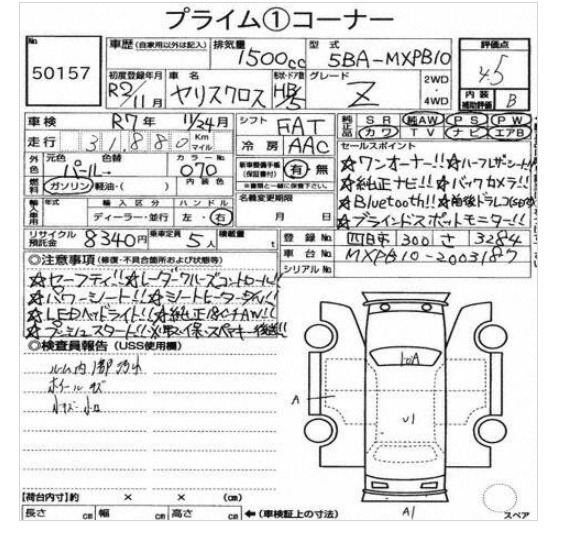 プライム①コーナー
No 50157
車歴(自家用以外は記入) 排気量 1500cc 型式 5BA-MXPB10 評価点 4.5
初度登録年月 R2/11月 車名 ヤリスクロス 形状・ドア数 HB/5 グレード Z 2WD・4WD 内装補助評価 B
車検 R7年 11/24月 シフト FAT 純正品 SR 純AW PS PW
走行 31,880 Km マイル 冷房 AAC カワ TV ナビ エアB
外色 元色 パール 色替→ カラーNo. 070 新車整備手帳(保証書付) 有・無
燃料 ガソリン・軽油・( ) 内装色 ※書類と一緒に保管下さい。
輸入車用 年式 輸入区分 ディーラー・並行 ハンドル 左・右 名義変更期限 月 日
セールスポイント
☆ワンオーナー!!☆ハーフレザーシート!!
☆純正ナビ!!☆バックカメラ!!
☆Bluetooth!!☆前後ドラレコ
☆ブラインドスポットモニター!!
リサイクル預託金 8340円 乗車定員 5人 積載量 t 登録No. 四日市 300 さ 3284
車台No. MXPB10-2003187
シリアルNo.
◎注意事項(修復・不具合箇所および状態等)
☆セーフティ!!☆レーダークルーズコントロール!!
☆パワーシート!!☆シートヒーター
☆LEDヘッドライト!!☆純正18吋AW!!
☆プッシュスタート!!※取・保・スペアキー後送!!
◎検査員報告(USS使用欄)
ルーム内
ホイールキズ
小キズ・小凹
A
10A
U1
A1
【荷台内寸】約 × × (cm)
長さ cm 幅 cm 高さ cm ←(車検証上の寸法)
スペア